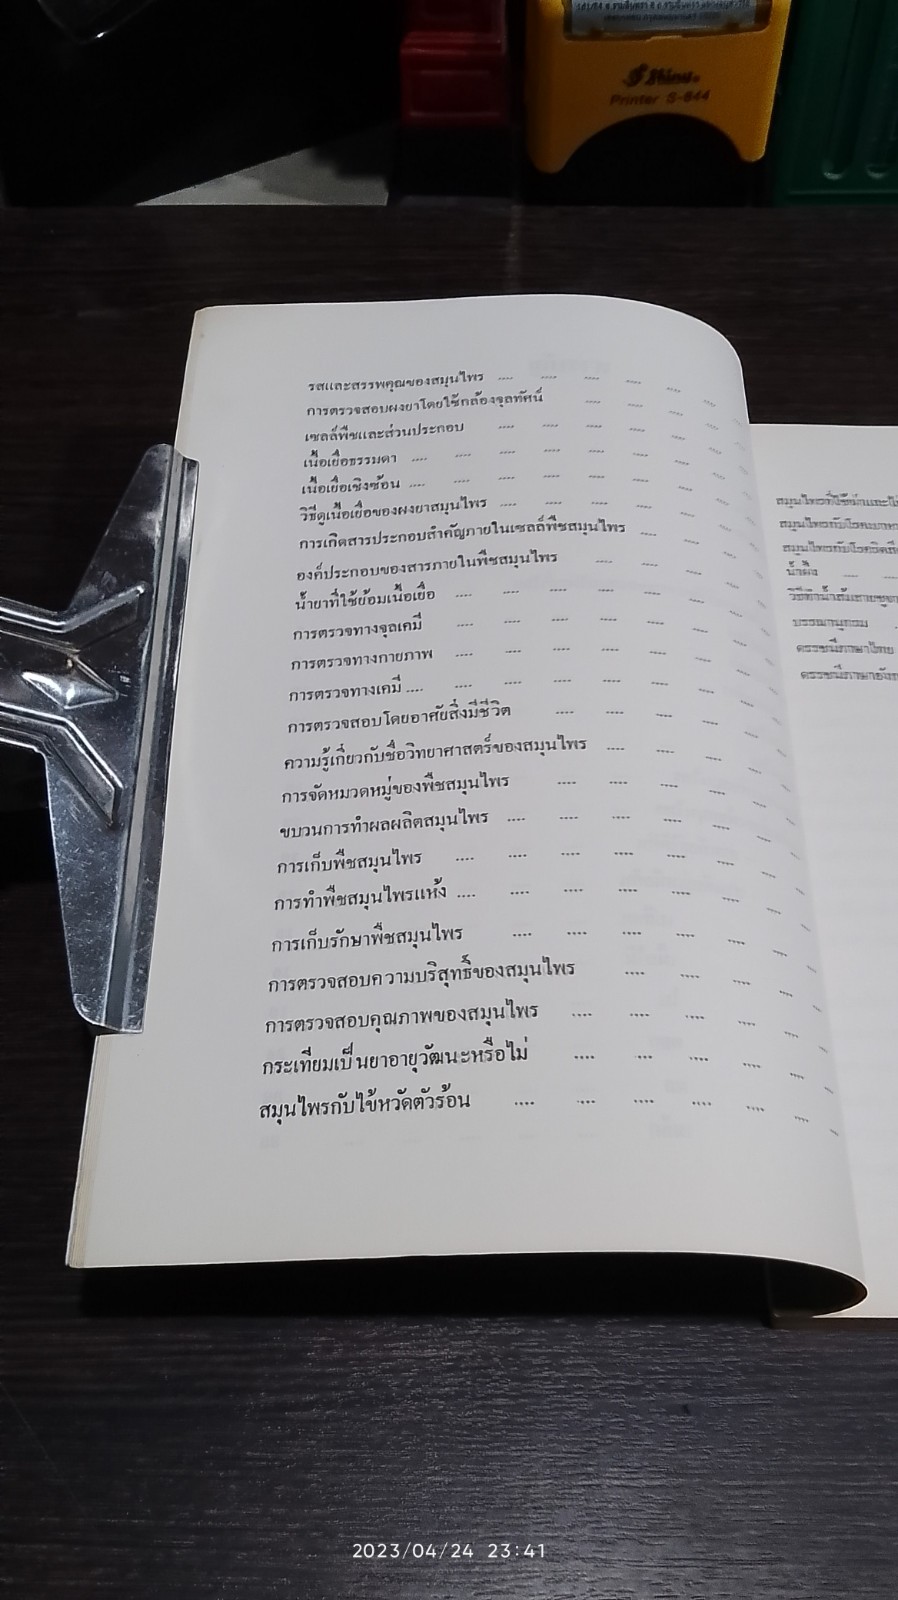 Shiny
Printer S-844
รสและสรรพคุณของสมุนไพร .... .... .... .... .... ....
การตรวจสอบผงยาโดยใช้กล้องจุลทัศน์ .... .... .... ....
เซลล์พืชและส่วนประกอบ .... .... .... .... .... ....
เนื้อเยื่อธรรมดา .... .... .... .... .... .... .... ....
เนื้อเยื่อเชิงซ้อน .... .... .... .... .... .... .... ....
วิธีดูเนื้อเยื่อของผงยาสมุนไพร .... .... .... .... .... ....
การเกิดสารประกอบสำคัญภายในเซลล์พืชสมุนไพร .... .... ....
องค์ประกอบของสารภายในพืชสมุนไพร .... .... .... ....
น้ำยาที่ใช้ย้อมเนื้อเยื่อ .... .... .... .... .... .... ....
การตรวจทางจุลเคมี .... .... .... .... .... .... ....
การตรวจทางกายภาพ .... .... .... .... .... .... ....
การตรวจทางเคมี .... .... .... .... .... .... .... ....
การตรวจสอบโดยอาศัยสิ่งมีชีวิต .... .... .... .... ....
ความรู้เกี่ยวกับชื่อวิทยาศาสตร์ของสมุนไพร .... .... .... ....
การจัดหมวดหมู่ของพืชสมุนไพร .... .... .... .... ....
ขบวนการทำผลผลิตสมุนไพร .... .... .... .... .... ....
การเก็บพืชสมุนไพร .... .... .... .... .... .... ....
การทำพืชสมุนไพรแห้ง .... .... .... .... .... .... ....
การเก็บรักษาพืชสมุนไพร .... .... .... .... .... ....
การตรวจสอบความบริสุทธิ์ของสมุนไพร .... .... .... ....
การตรวจสอบคุณภาพของสมุนไพร .... .... .... .... ....
กระเทียมเป็นยาอายุวัฒนะหรือไม่ .... .... .... .... ....
สมุนไพรกับไข้หวัดตัวร้อน .... .... .... .... .... .... ....
น้ำผึ้ง .... ....
บรรณานุกรม
ดรรชนีภาษาไทย
2023/04/24 23:41